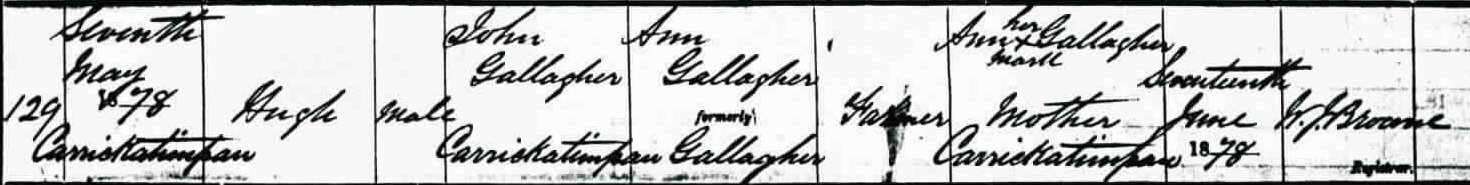 129
Seventh
May
1878
Carrickatimpan
Hugh
Male
John
Gallagher
Carrickatimpan
Ann
Gallagher
formerly
Gallagher
Farmer
her
Ann x Gallagher
mark
Mother
Carrickatimpan
Seventeenth
June
1878
W. J. Browne
Registrar.